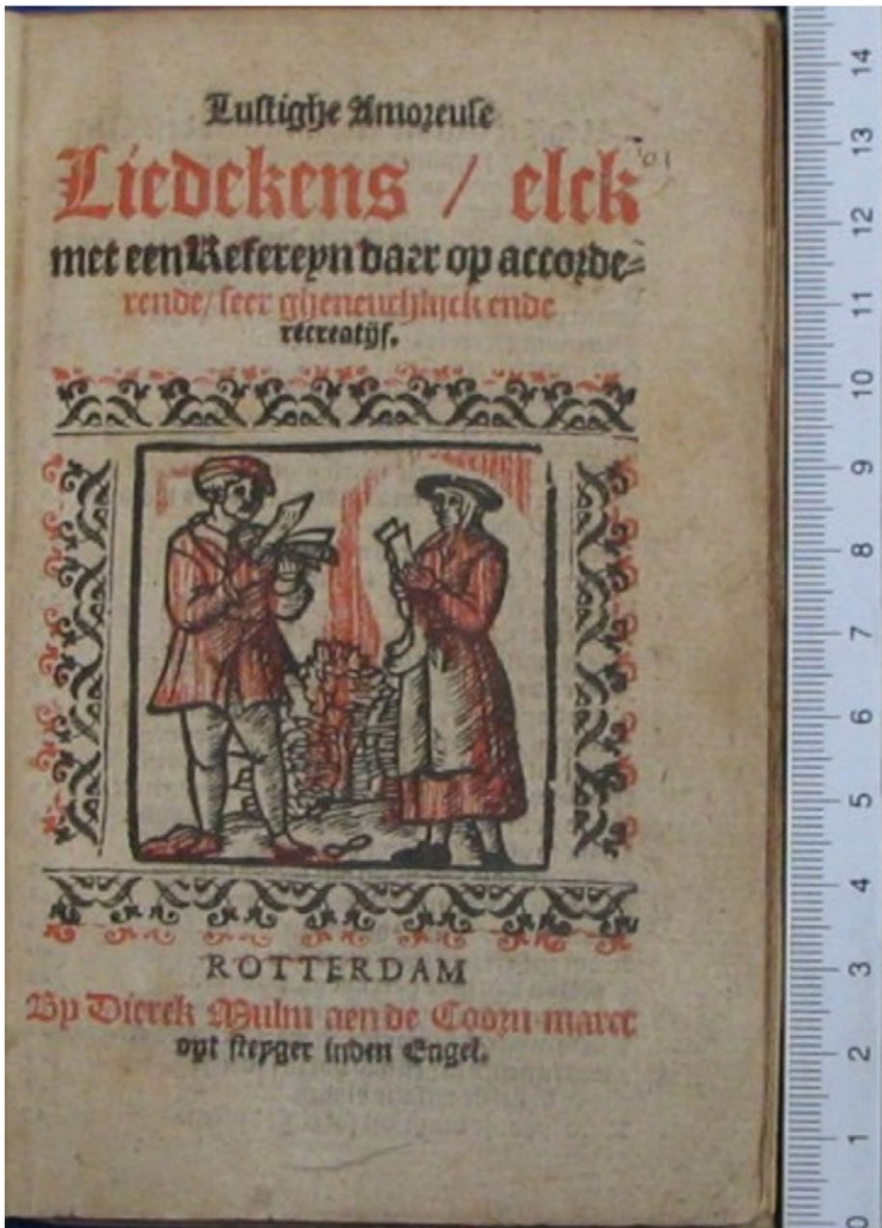 Lustighe Amoreuse
Liedekens / elck
met een Refereyn daer op accorde=
rende/ seer gheneuchlijck ende
recreatijf.
ROTTERDAM
By Dierck Mulm aen de Coorn-marct
opt steyger inden Engel.
14
13
12
11
10
9
8
7
6
5
4
3
2
1
0